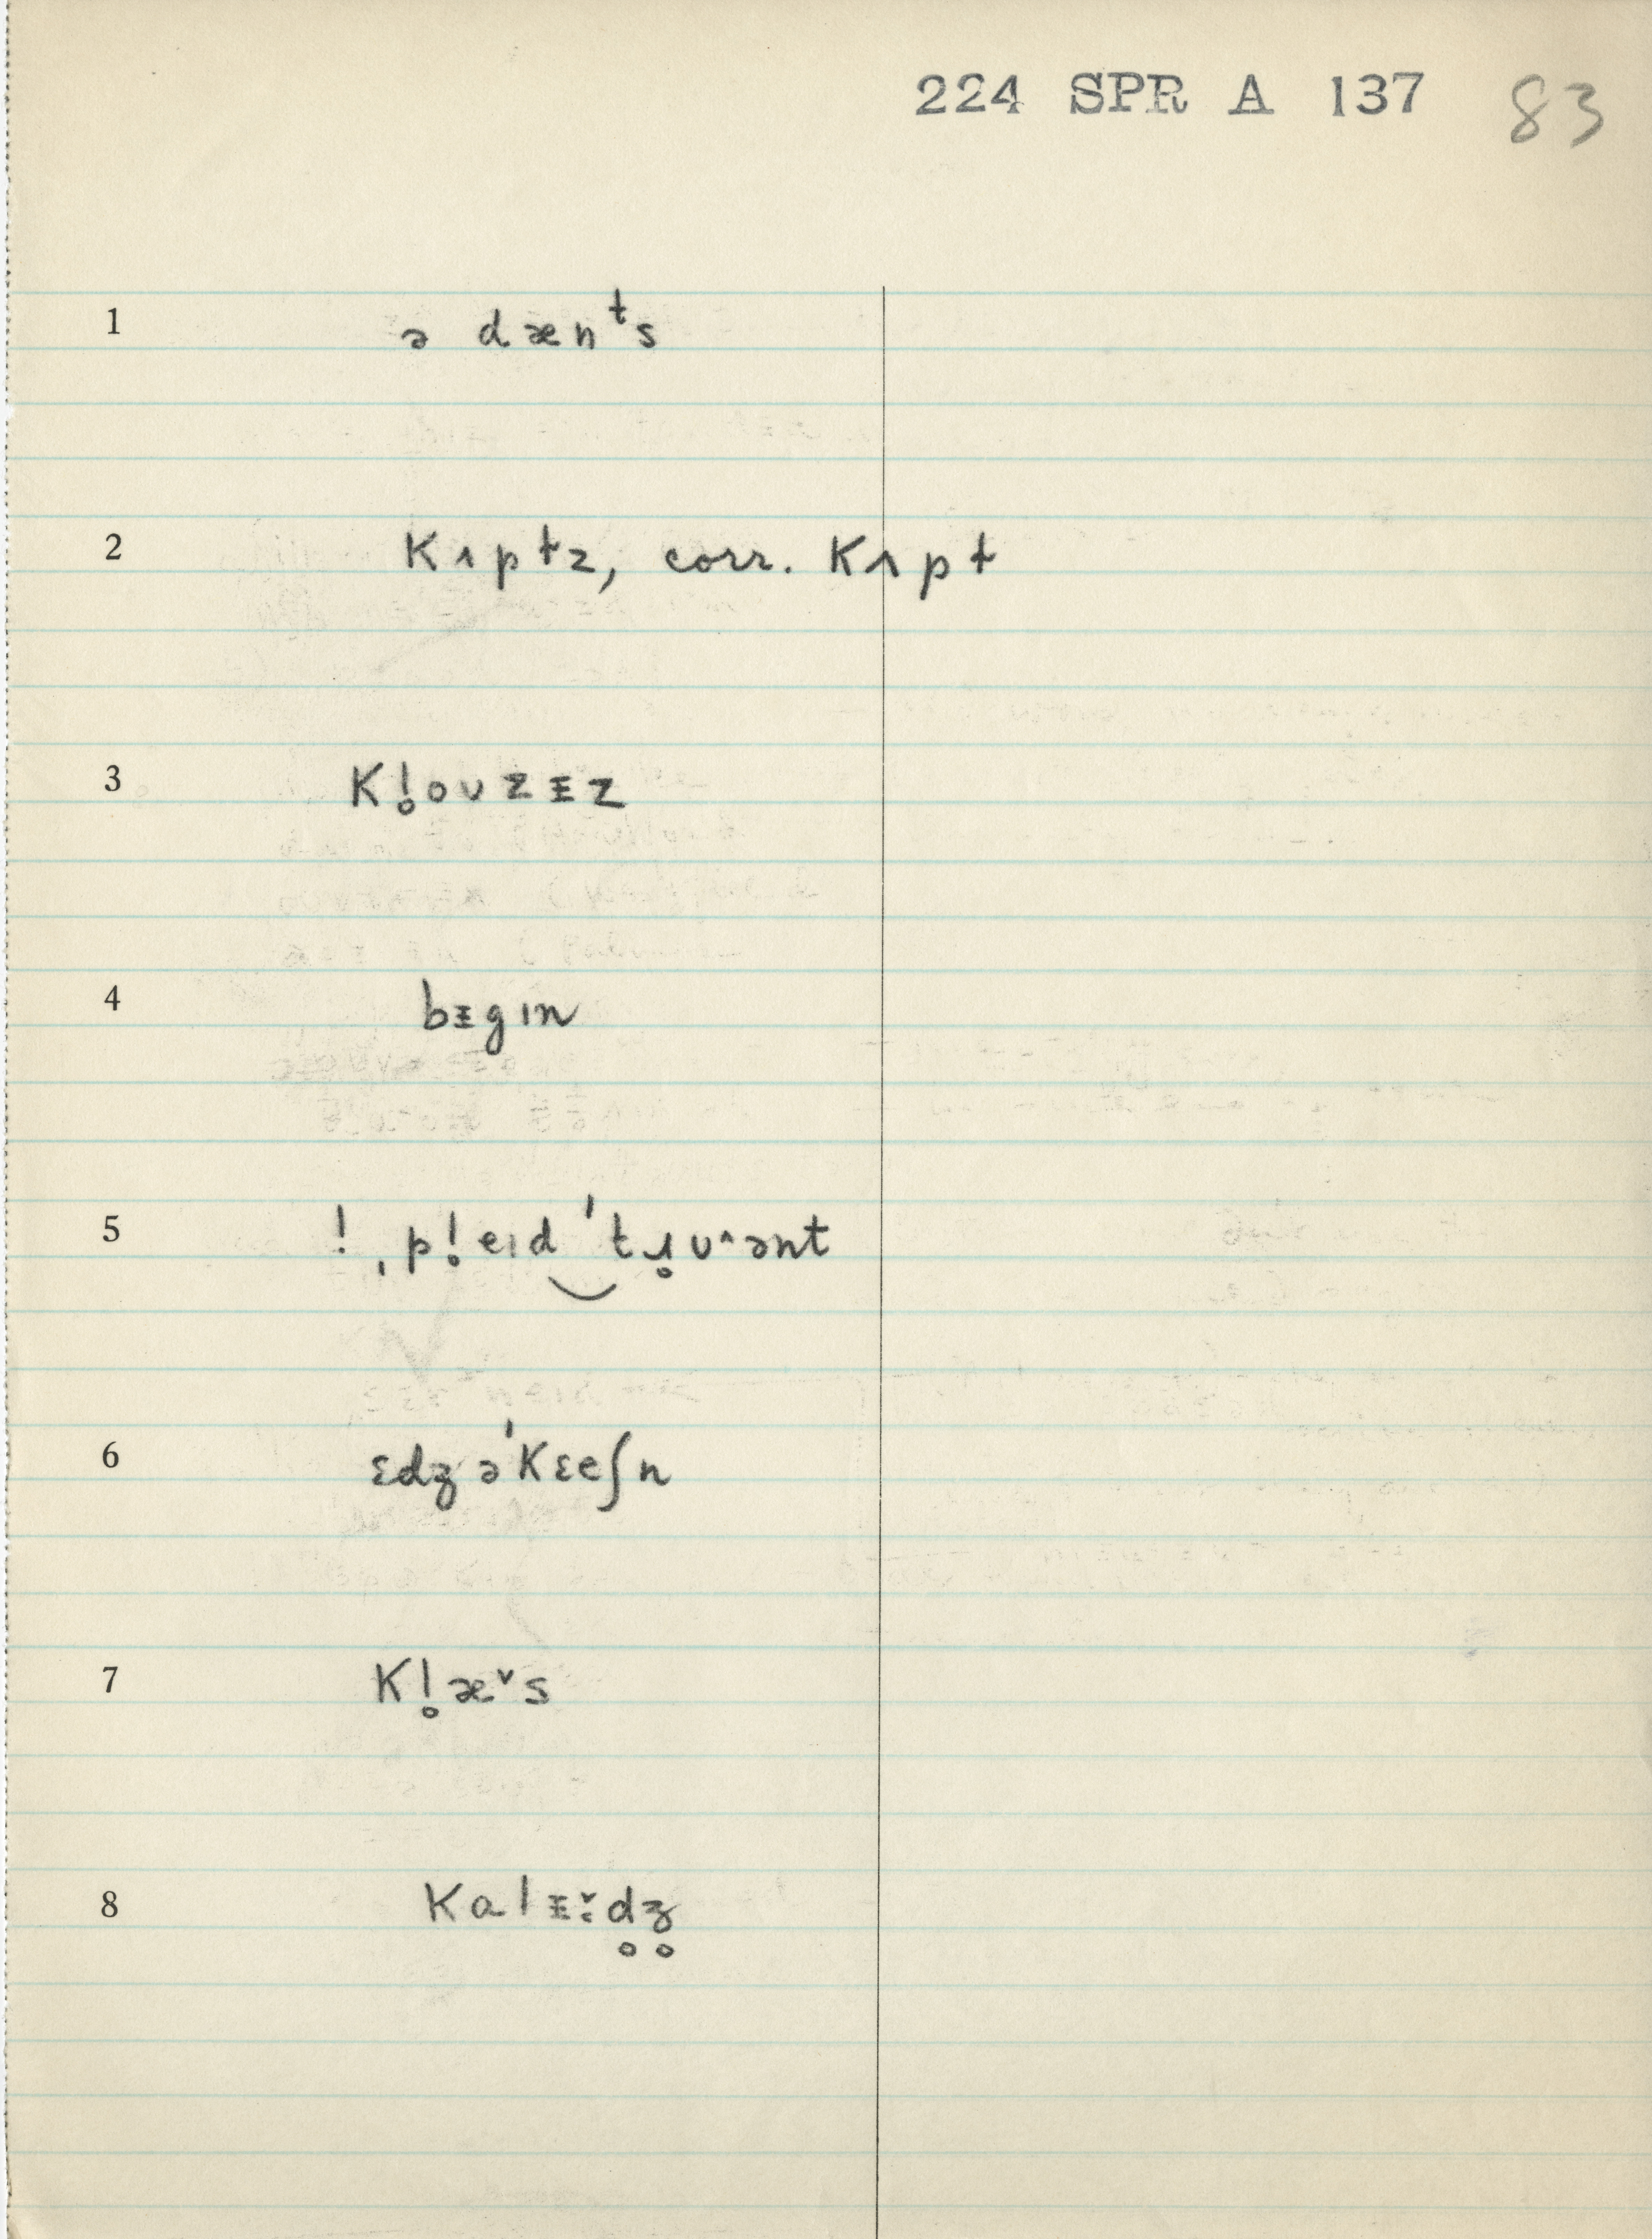 224 SPR A 137 83
1 ə dænᵗs
2 kʌptz, corr. kʌpt
3 kl̥ouzᵻz
4 bᵻgɪn
5 ! ˌpl̥eɪd ‿ˈtɹ̥uˆənt
6 ɛdʒəˈkɛeʃn
7 kl̥æˇs
8 kɑlᵻˑ̌d̥ʒ̥